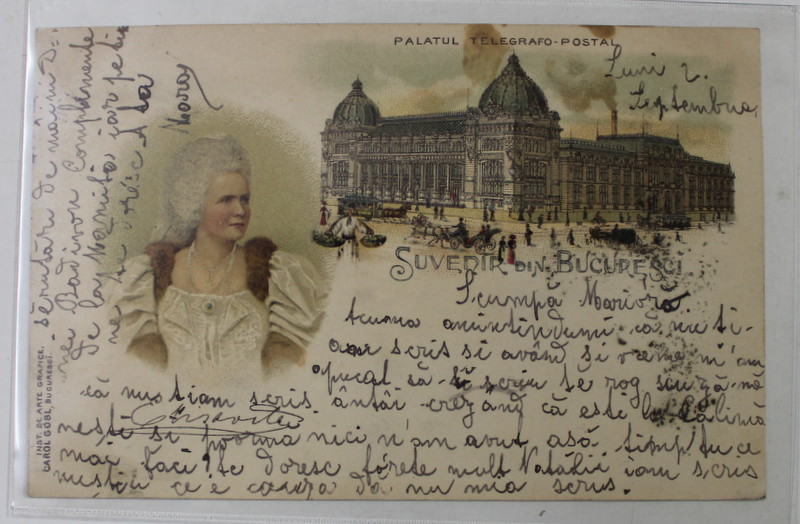 PALATUL TELEGRAFO-POSTAL
Luni 2.
Septembrie
SUVENIR DIN BUCURESCI
Scumpă Marioră
acuma amintindumi că nu ti-
am scris si având si vreme m'am
apucat să-ti scriu te rog scuză-mă
că nu ti am scris întâi crezând că esti la Călimă
nesti si pormă nici n'am avut asă timp tu ce
mai faci? te doresc fórte mult Natălii iam scris
nustiu ce e cauza da nu mia scris.
sărutări de mâini D-
nei Radivon Complimente
de la Mamita iar pe tine
te doresc A ta
INST. DE ARTE GRAFICE,
CAROL GÖBL, BUCURESCI.